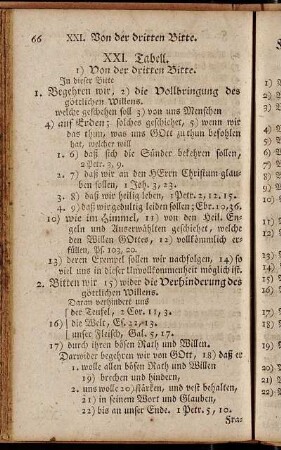 66 XXI. Von der dritten Bitte.
XXI. Tabell.
1) Von der dritten Bitte.
In dieser Bitte
1. Begehren wir, 2) die Vollbringung des
göttlichen Willens.
welche geschehen soll 3) von uns Menschen
4) auf Erden; solches geschiehet, 5) wenn wir
das thun, was uns GOtt zu thun befohlen
hat, welcher will
1. 6) daß sich die Sünder bekehren sollen,
2 Petr. 3, 9.
2. 7) daß wir an den HErrn Christum glau-
ben sollen, 1 Joh. 3, 23.
3. 8) daß wir heilig leben, 1 Petr. 2, 12. 15.
4. 9) daß wir gedultig leiden sollen; Ebr. 10, 36.
10) wie im Himmel, 11) von den Heil. En-
geln und Auserwählten geschiehet, welche
den Willen GOttes, 12) vollkömmlich er-
füllen, Ps. 103, 20.
13) deren Exempel sollen wir nachfolgen, 14) so
viel uns in dieser Unvollkommenheit möglich ist.
2. Bitten wir 15) wider die Verhinderung des
göttlichen Willens.
Daran verhindert uns
der Teufel, 2 Cor. 11, 3.
16) die Welt, Es. 22, 13.
unser Fleisch, Gal. 5, 17.
17) durch ihren bösen Rath und Willen.
Darwider begehren wir von GOtt, 18) daß er
1. wolle allen bösen Rath und Willen
19) brechen und hindern,
2. uns wolle 20) stärken, und vest behalten,
21) in seinem Wort und Glauben,
22) bis an unser Ende. 1 Petr. 5, 10.
Fra-